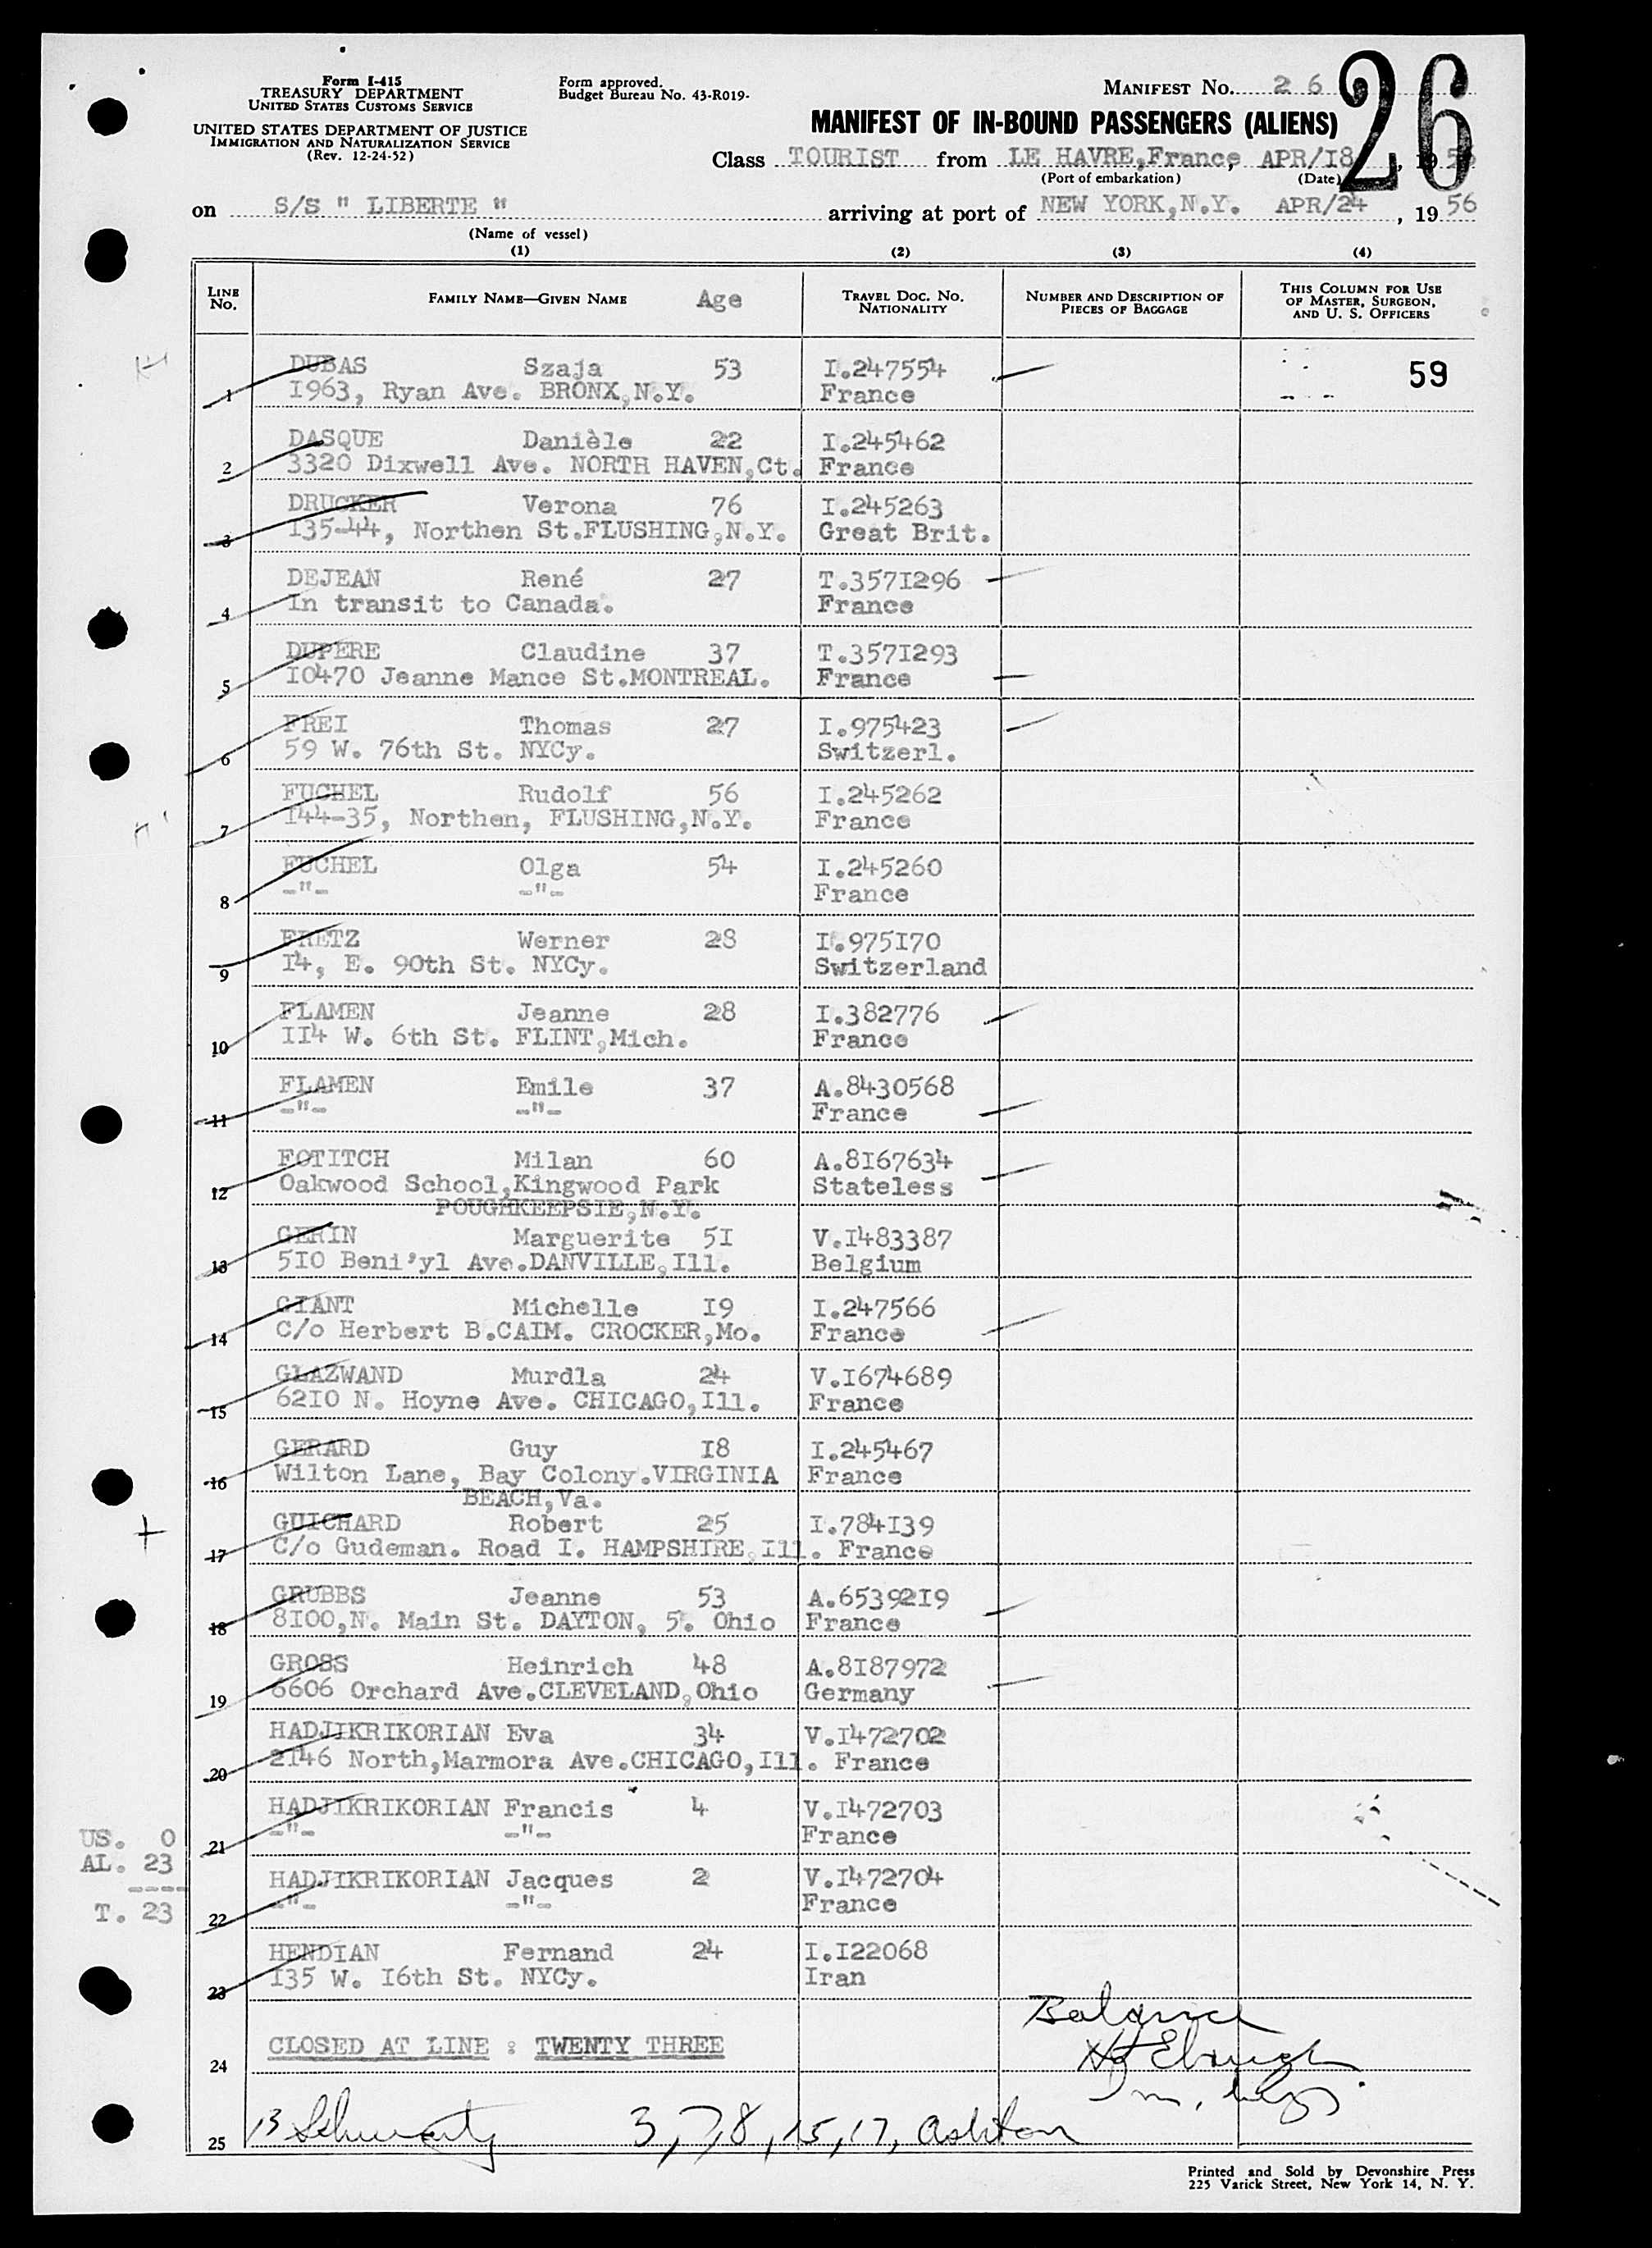 Form I-415
TREASURY DEPARTMENT
UNITED STATES CUSTOMS SERVICE
UNITED STATES DEPARTMENT OF JUSTICE
IMMIGRATION AND NATURALIZATION SERVICE
(Rev. 12-24-52)
Form approved.
Budget Bureau No. 43-R019-
MANIFEST No. 26
26
MANIFEST OF IN-BOUND PASSENGERS (ALIENS)
Class TOURIST from LE HAVRE,France, APR/I8, 1956
(Port of embarkation) (Date)
on S/S " LIBERTE " arriving at port of NEW YORK,N.Y. APR/24, 1956
(Name of vessel)
(1) (2) (3) (4)
LINE No. FAMILY NAME—GIVEN NAME Age TRAVEL DOC. No. NATIONALITY NUMBER AND DESCRIPTION OF PIECES OF BAGGAGE THIS COLUMN FOR USE OF MASTER, SURGEON, AND U. S. OFFICERS
1 DUBAS Szaja 53 I.247554 59
I963, Ryan Ave. BRONX,N.Y. France
2 DASQUE Danièle 22 I.245462
3320 Dixwell Ave. NORTH HAVEN,Ct. France
3 DRUCKER Verona 76 I.245263
I35-44, Northen St.FLUSHING,N.Y. Great Brit.
4 DEJEAN René 27 T.357I296
In transit to Canada. France
5 DUPERE Claudine 37 T.357I293
I0470 Jeanne Mance St.MONTREAL. France
6 FREI Thomas 27 I.975423
59 W. 76th St. NYCy. Switzerl.
7 FUCHEL Rudolf 56 I.245262
I44-35, Northen, FLUSHING,N.Y. France
8 FUCHEL Olga 54 I.245260
-"- -"- France
9 FRETZ Werner 28 I.975I70
I4, E. 90th St. NYCy. Switzerland
10 FLAMEN Jeanne 28 I.382776
II4 W. 6th St. FLINT,Mich. France
11 FLAMEN Emile 37 A.8430568
-"- -"- France
12 FOTITCH Milan 60 A.8I67634
Oakwood School,Kingwood Park Stateless
POUGHKEEPSIE,N.Y.
13 GERIN Marguerite 5I V.I483387
5I0 Beni'yl Ave.DANVILLE,Ill. Belgium
14 GIANT Michelle I9 I.247566
C/o Herbert B.CAIM. CROCKER,Mo. France
15 GLAZWAND Murdla 24 V.I674689
62I0 N. Hoyne Ave. CHICAGO,Ill. France
16 GERARD Guy I8 I.245467
Wilton Lane, Bay Colony.VIRGINIA France
BEACH,Va.
17 GUICHARD Robert 25 I.784I39
C/o Gudeman. Road I. HAMPSHIRE,Ill. France
18 GRUBBS Jeanne 53 A.65392I9
8I00,N. Main St. DAYTON, 5. Ohio France
19 GROSS Heinrich 48 A.8I87972
6606 Orchard Ave.CLEVELAND,Ohio Germany
20 HADJIKRIKORIAN Eva 34 V.I472702
2I46 North,Marmora Ave.CHICAGO,Ill. France
21 HADJIKRIKORIAN Francis 4 V.I472703
-"- -"- France
22 HADJIKRIKORIAN Jacques 2 V.I472704
-"- -"- France
23 HENDIAN Fernand 24 I.I22068
I35 W. I6th St. NYCy. Iran
US. 0
AL. 23
----
T. 23
Balance
24 CLOSED AT LINE : TWENTY THREE
25 B Schwartz 3,7,8,15,17, Ashton
Printed and Sold by Devonshire Press
225 Varick Street, New York 14, N. Y.